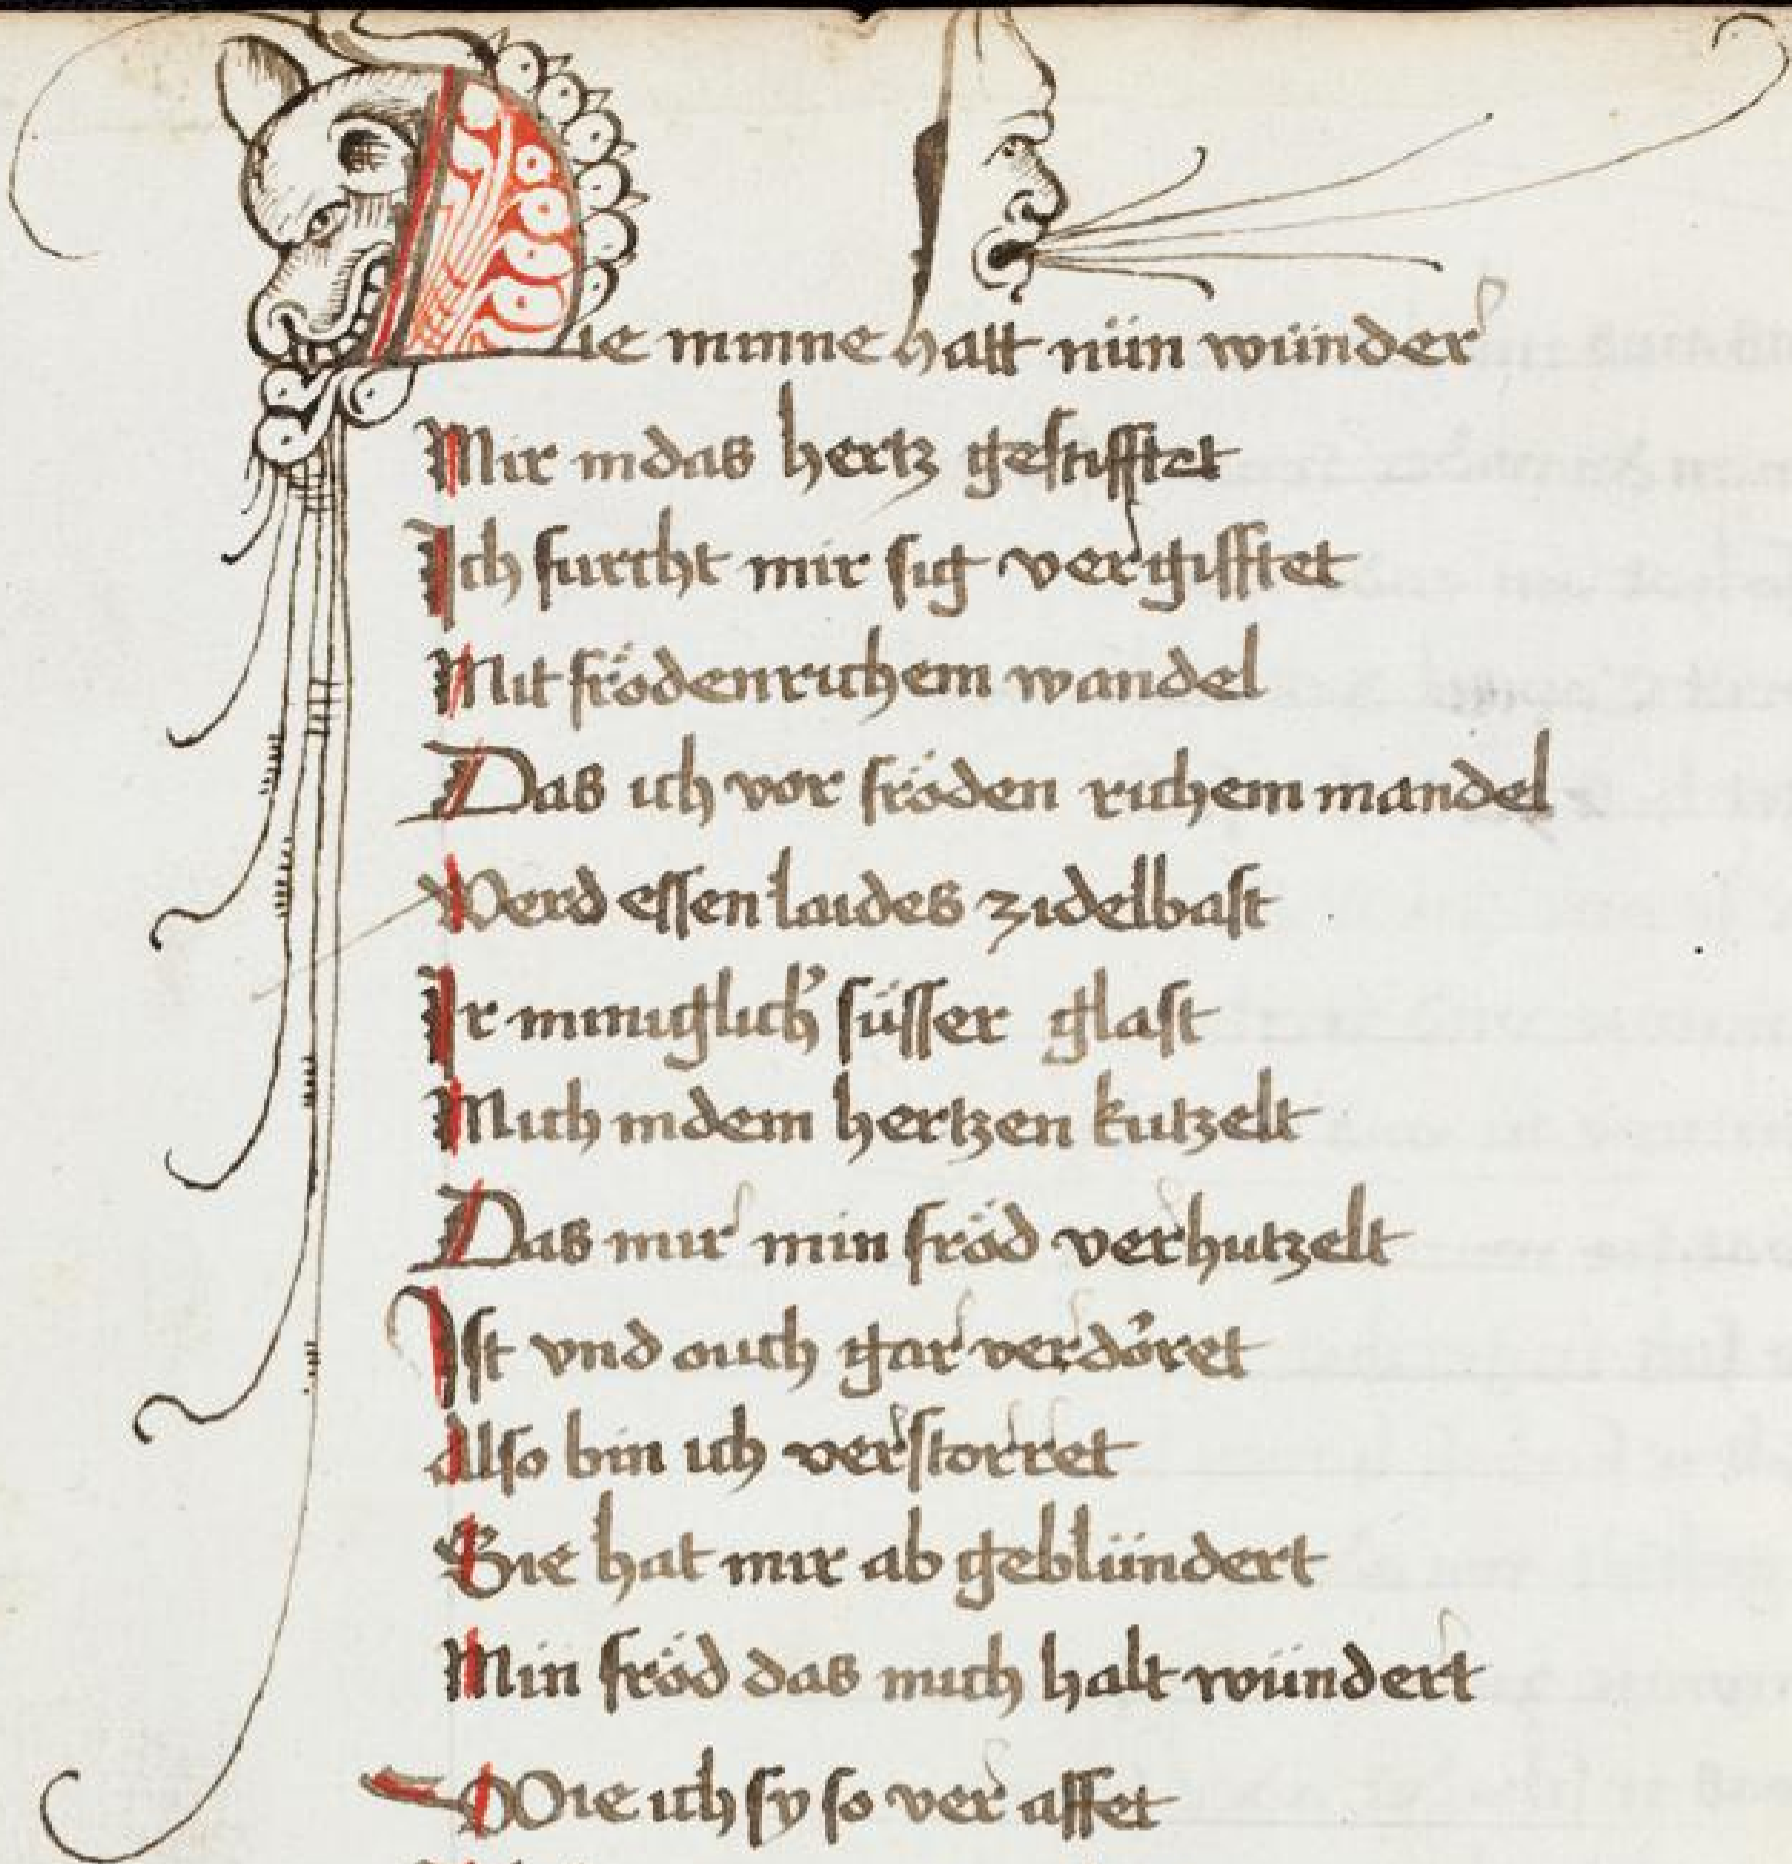 Die minne hatt nün wünder
Mir indas hertz gestifftet
Ich furcht mir sig vergifftet
Mit frödenrichem wandel
Das ich vor fröden richem mandel
Werd essen laides zidelbast
Ir minniglich' süsser glast
Mich indem hertzen kutzelt
Das mir min fröd verhutzelt
Ist vnd ouch gar verdöret
Also bin ich verstorret
Sie hat mir ab geblündert
Min fröd das mich halt wündert
Wie ich sy so ver affet